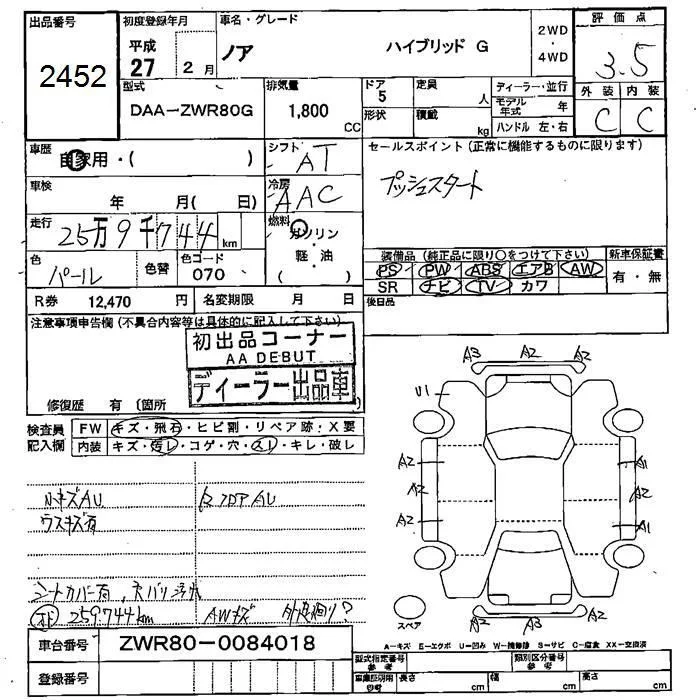 出品番号
2452
初度登録年月
平成
27 2 月
車名・グレード
ノア ハイブリッド G
2WD
・
4WD
評価点
3.5
外装 内装
C C
型式
DAA-ZWR80G
排気量
1,800
CC
ドア
5
定員
人
形状
積載
kg
ディーラー・並行
モデル年式 年
ハンドル 左・右
車歴
自家用・( )
シフト
AT
セールスポイント (正常に機能するものに限ります)
プッシュスタート
車検
年 月( 日)
冷房
AAC
走行
25万9千744 km
燃料
ガソリン
・
軽・油
色
パール
色替
色コード
070
装備品 (純正品に限り○をつけて下さい)
新車保証書
PS PW ABS エアB AW
SR ナビ TV カワ
有・無
R券 12,470 円
名変期限 月 日
後日品
注意事項申告欄 (不具合内容等は具体的に記入して下さい)
初出品コーナー
AA DEBUT
ディーラー出品車
修復歴 有 〔箇所
検査員
記入欄
FW キズ・飛石・ヒビ割・リペア跡・X要
内装 キズ・汚レ・コゲ・穴・スレ・キレ・破レ
ルキズAU
ウスキズ有
シートカバー有、
259,744km AWキズ 外廻り?
A3 A2 A2
U1
A2 A1
A2 A2
A2 A1
A2 A3 A2
スペア
A-キズ E-エクボ U-凹み W-補修跡 S-サビ C-腐食 XX-交換済
車台番号 ZWR80-0084018
登録番号
型式指定番号
参考
類別区分番号
参考
車庫証明用
参考
長さ cm
幅 cm
高さ cm